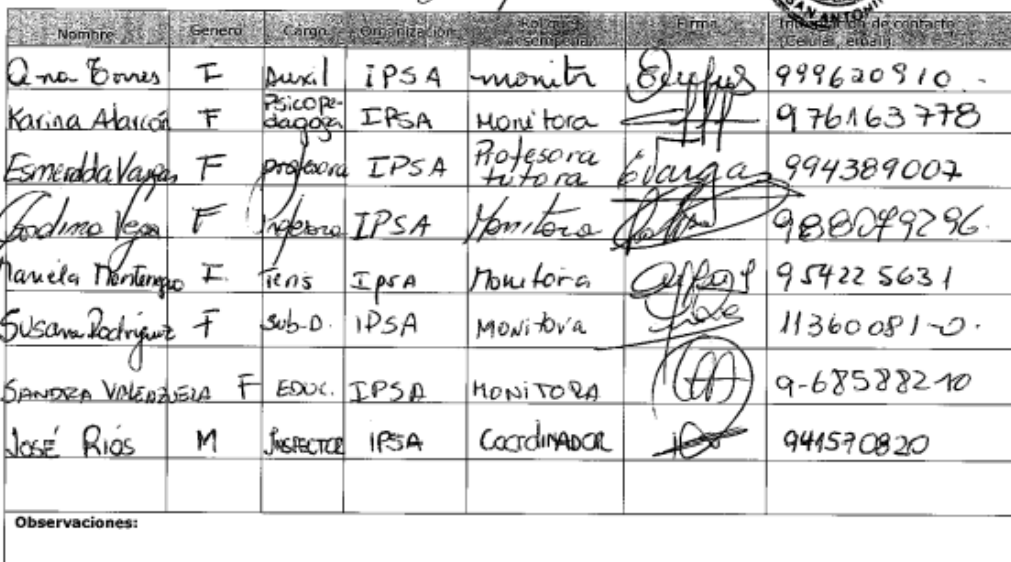 SAN ANTONIO
Nombre Genero Cargo Organización Rol que desempeña Firma Información de contacto (Celular, email)
Ana Torres F Auxil IPSA monitr 999620910.
Karina Alarcón F Psicopedagoga IPSA Monitora 976163778
Esmeralda Vargas F profesora IPSA Profesora tutora EVargas 994389007
Vega F Profesora IPSA Monitora 988079296.
Mariela Montenegro F Tens IPSA Monitora 954225631
Susana Rodriguez F Sub-D. IPSA Monitora 11360081-0.
SANDRA VALENZUELA F EDUC. IPSA MONITORA 9-68588210
JOSÉ RIOS M INSPECTOR IPSA COORDINADOR 941570820
Observaciones: